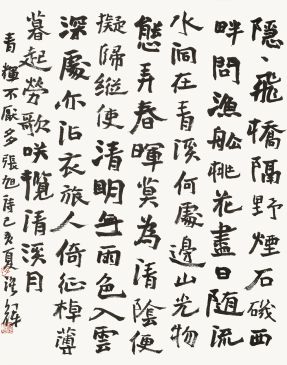 隐、飛橋隔野煙石磯西
畔問漁船桃花盡日随流
水洞在青溪何處邊山光物
態弄春暉莫為清陰便
擬歸縱使清明無雨色入雲
深處亦沾衣旅人倚征棹薄
暮起勞歌咲攬清溪月
青輝不厭多張旭詩己亥夏